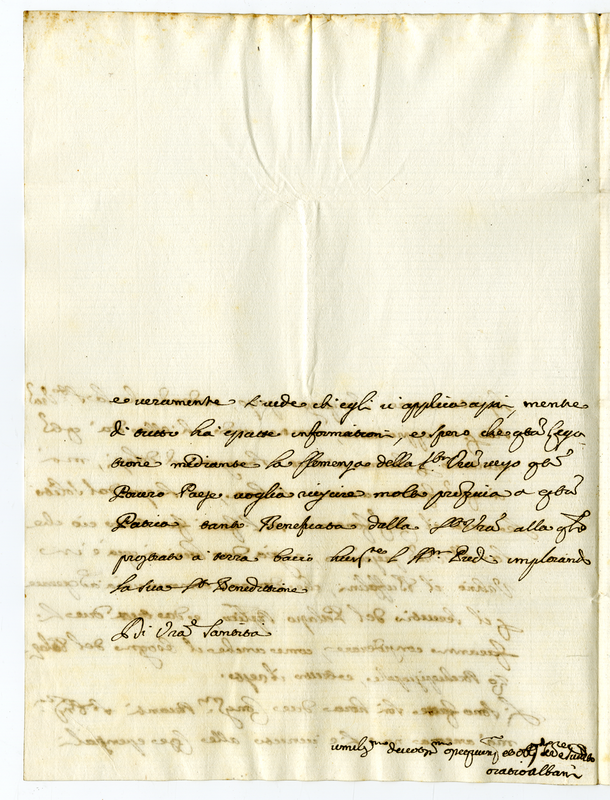 e veramente si vede ch'egli vi applica assai, mentre
di tutto ha esatte informationi, e spero che q.ta Lega
tione mediante la Clemenza della S.tà V.ra verso q.to
Povero Paese voglia riuscire molto proficua a q.ta
Patria tanto Beneficata dalla S.tà V.ra alla q.le
prostrato a terra bacio hum.te i S.mi Piedi implorando
la sua S.ta Beneditione
Di V.ra Santità
umiliss.mo devotiss.mo
oratio albani